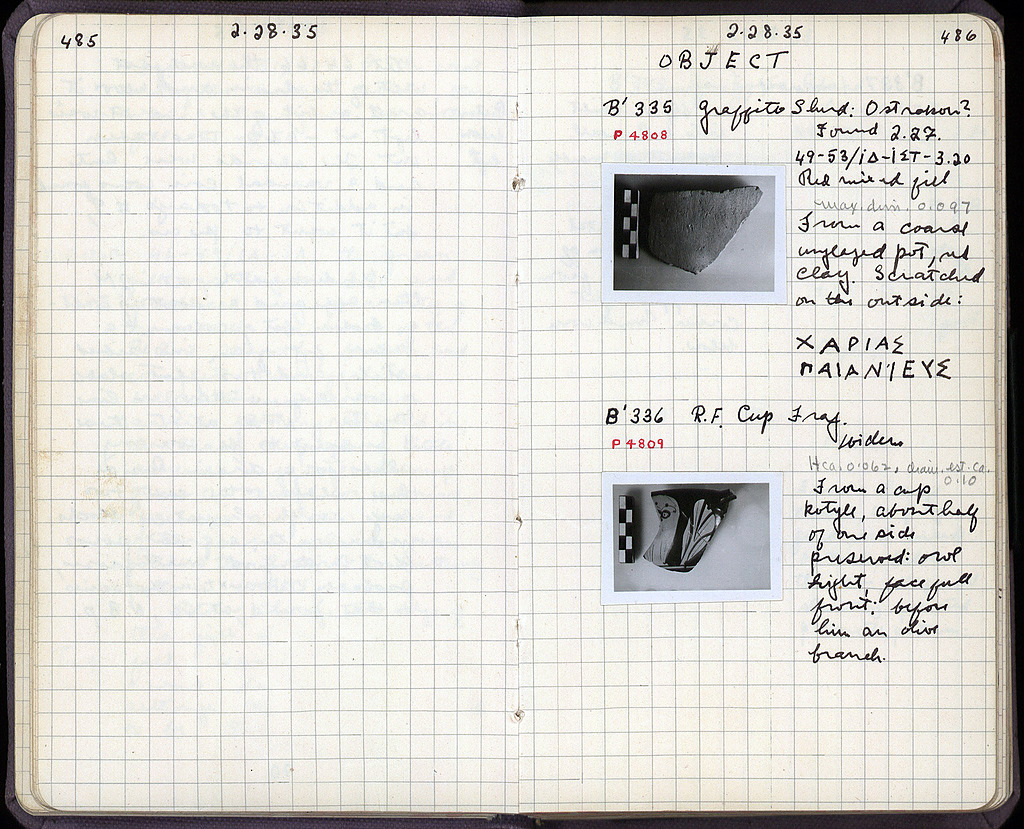 485
2·28·35
2·28·35
486
OBJECT
B' 335 Graffito Sherd: Ostrakon?
P 4808
Found 2.27.
49-53/ΙΔ-ΙΣΤ-3.20
Red mixed fill
max. dim. 0.097
From a coarse
unglazed pot, red
clay. Scratched
on the outside:
ΧΑΡΙΑΣ
ΠΑΙΑΝΙΕΥΣ
B' 336 R.F. Cup Frag.
P 4809
H ca. 0.062, diam. est. ca.
0.10
From a cup
kotyle, about half
of one side
preserved: owl
right, face full
front; before
him an olive
branch.